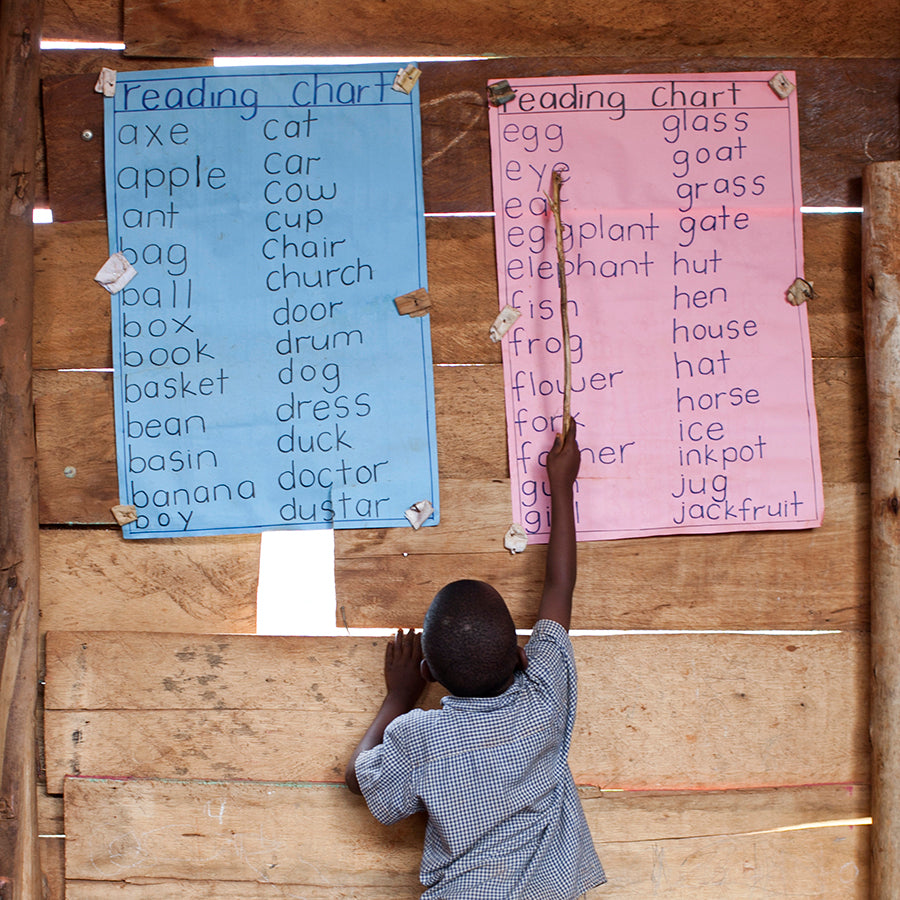 reading chart
axe
apple
ant
bag
ball
box
book
basket
bean
basin
banana
boy
cat
car
cow
cup
chair
church
door
drum
dog
dress
duck
doctor
dustar
reading chart
egg
eye
ear
eggplant
elephant
fish
frog
flower
fork
farmer
gun
girl
glass
goat
grass
gate
hut
hen
house
hat
horse
ice
inkpot
jug
jackfruit